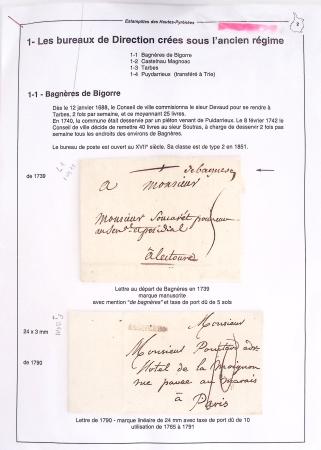 Estampilles des Hautes-Pyrénées
2
1- Les bureaux de Direction crées sous l'ancien régime
1-1 Bagnères de Bigorre
1-2 Castelnau Magnoac
1-3 Tarbes
1-4 Puydarrieux (transféré à Trie)
1-1 - Bagnères de Bigorre
Dès le 12 janvier 1688, le Conseil de ville commisionna le sieur Devaud pour se rendre à
Tarbes, 2 fois par semaine, et ce moyennant 25 livres.
En 1740, la commune était desservie par un piéton venant de Puidarrieux. Le 8 février 1742 le
Conseil de ville décide de remettre 40 livres au sieur Soutras, à charge de desservir 2 fois pas
semaine tous les endroits des environs de Bagnères.
Le bureau de poste est ouvert au XVIIᵉ siècle. Sa classe est de type 2 en 1851.
de 1739
debagneres
a monsieur
monsieur Soucarét
au Senal et presidial
à lectoure
Lettre au départ de Bagnères en 1739
marque manuscrite
avec mention "de bagnères" et taxe de port dû de 5 sols
24 x 3 mm
de 1790
Monsieur
Monsieur
hotel de la
rue pavée au Marais
à
Paris
Lettre de 1790 - marque linéaire de 24 mm avec taxe de port dû de 10
utilisation de 1765 à 1791